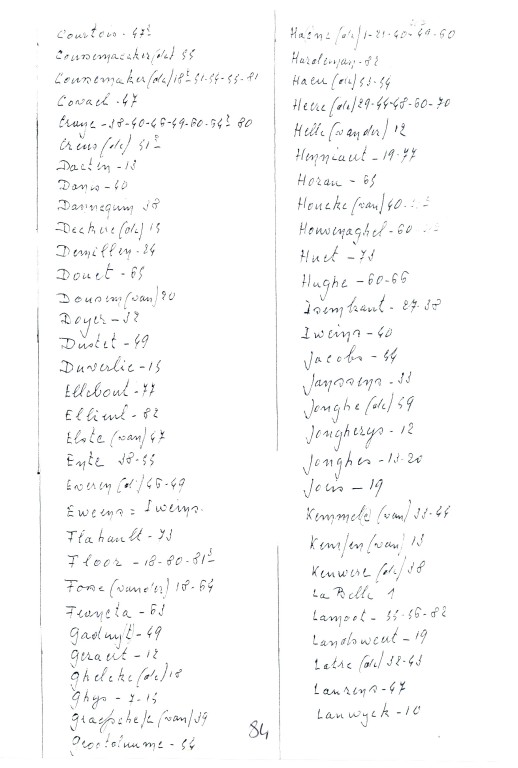 Courtois - 47²
Coussemaecker (de) 55
Coussemaker (de) 18²-51-54-55-81
Covael - 47
Craye - 38-40-46-49-60-64²-80
Creus (de) 51²
Daeten - 13
Danis - 40
Dannequin 38
Deckere (de) 15
Demillen - 24
Douet - 65
Dousem (van) 20
Doyer - 32
Dustet - 49
Duverlie - 15
Ellebout - 77
Ellieul - 82
Elste (van) 47
Ente 38-55
Everen (d') 46-49
Eweins = Iweins
Flahault - 73
Floor - 18-80-81²
Fosse (vander) 18-64
Francta - 63
Gadnyt - 49
Geraert - 12
Ghelcke (de) 18
Ghys - 7-15
Graefschepe (van) 39
Grootduume - 54
Haene (de) 1-21-40-49-60
Hardeman - 82
Haeu (de) 53-54
Heere (de) 29-44-48-60-70
Helle (vander) 12
Henniaert - 19-77
Horan - 65
Houcke (van) 40
Houvenaghel - 60
Huet - 73
Hughe - 60-66
Isembrant - 27-38
Iweins - 40
Jacobs - 44
Janssens - 33
Jonghe (de) 59
Jongherys - 12
Jonghes - 13-20
Joris - 19
Kemmele (van) 33-44
Kempen (van) 13
Keuwere (de) 38
La Belle 1
Lamoot - 55-56-82
Landsweert - 19
Latre (de) 32-43
Laurens - 47
Lauwyck - 10
84